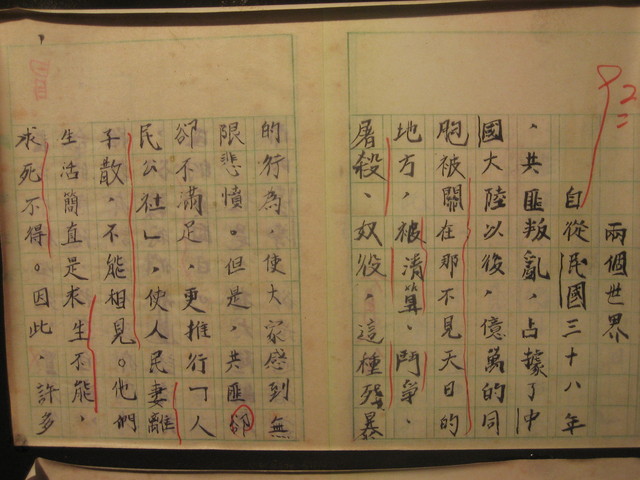 兩個世界
自從民國三十八年
，共匪叛亂，占據了中
國大陸以後，億萬的同
胞被關在那不見天日的
地方，被清算、鬥爭、
屠殺、奴役，這種殘暴
的行為，使大家感到無
限悲憤。但是，共匪卻
卻不滿足，更推行「人
民公社」，使人民妻離
子散，不能相見。他們
生活簡直是求生不能，
求死不得。因此、許多